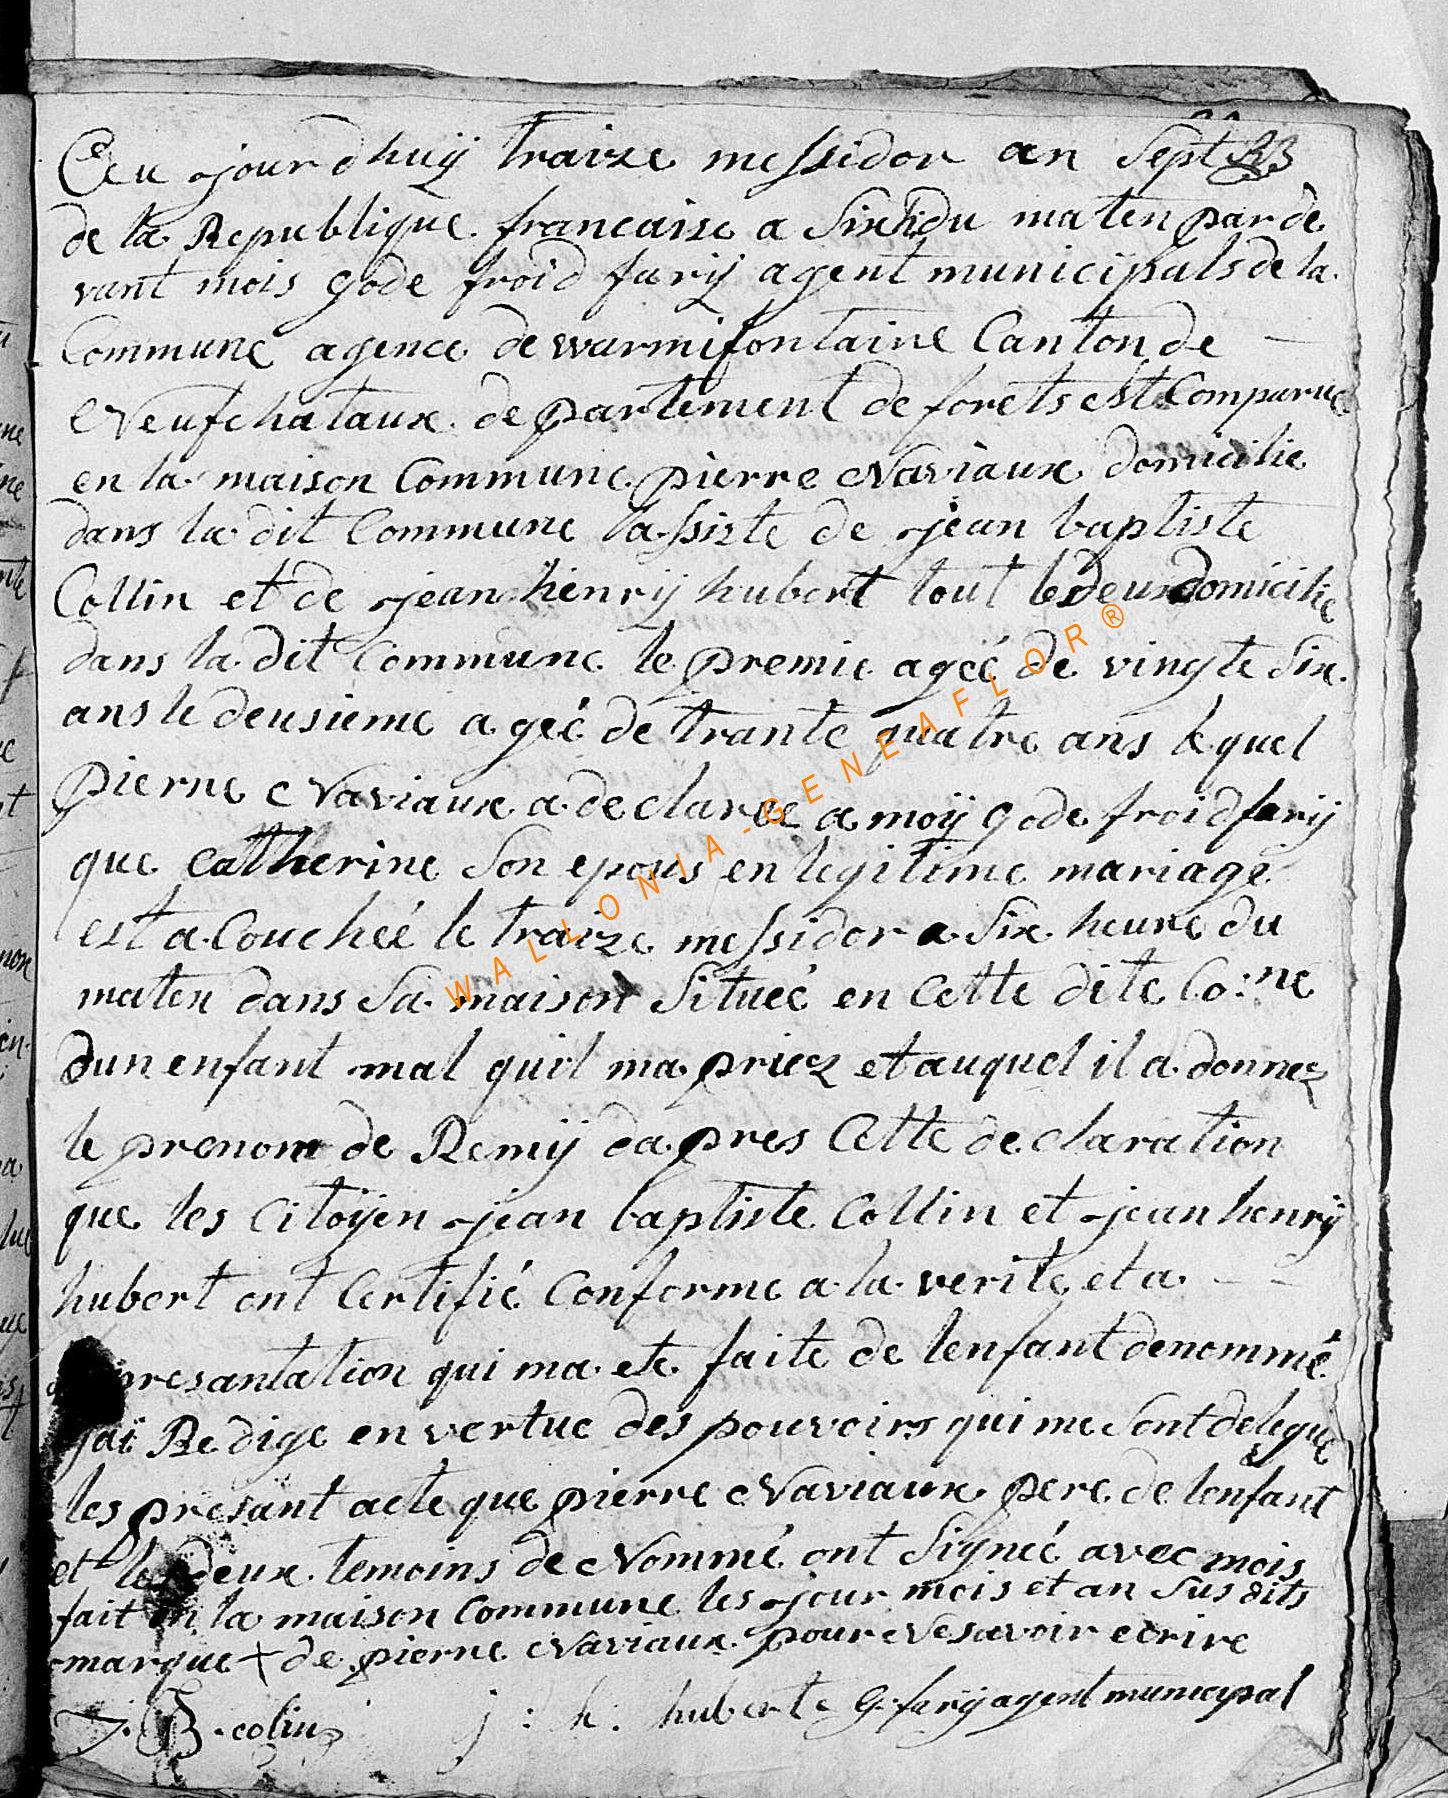 Ceu jour dhuij traize messidor an Sept
de la Republique francaise a Six h du maten par de
vant mois gode froid farij agent municipals de la
Commune agence de warmifontaine Canton de
Neufchataux departement de forets est Comparue
en la maison Commune pierre Naviaux domicilie
dans la dit Commune lassiste de jean baptiste
Collin et de jean henrij hubert tout le deux domicilie
dans la dit Commune le premie ageé de vingte Six
ans le deusieme a geé de trante quatre ans lequel
pierre Naviaux a declaree a moij gode froid farij
que Catherine Son epous en legitime mariage
est a Couchéé le traize messidor a Six heure du
maten dans Sa maison Situéé en Cette dite Co:ne
dun enfant mal quil ma priez et auquel il a donnez
le prenom de Remij da pres Cette declaration
que les Citoÿen jean baptiste Collin et jean henrij
hubert ont Certifié Conforme a la verite et a
presantation qui ma ete faite de lenfant denommé
jai Redige en vertue des pouvoirs qui me Sont delegue
les presant acte que pierre Naviaux pere de lenfant
et les deux temoins de Nommé ont Signeé avec mois
fait en la maison Commune les jour mois et an Sus dits
marque + de pierre Naviaux pour Ne savoir ecrire
J. B. colin j: h: huberte G. farij agent municipal
WALLONIA-GENEAFLOR®